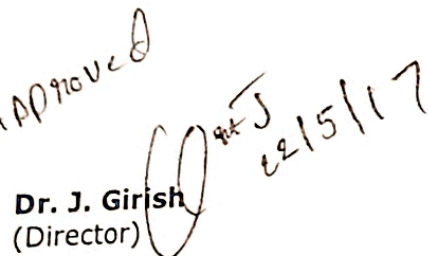 Approved
22/5/17
Dr. J. Girish
(Director)